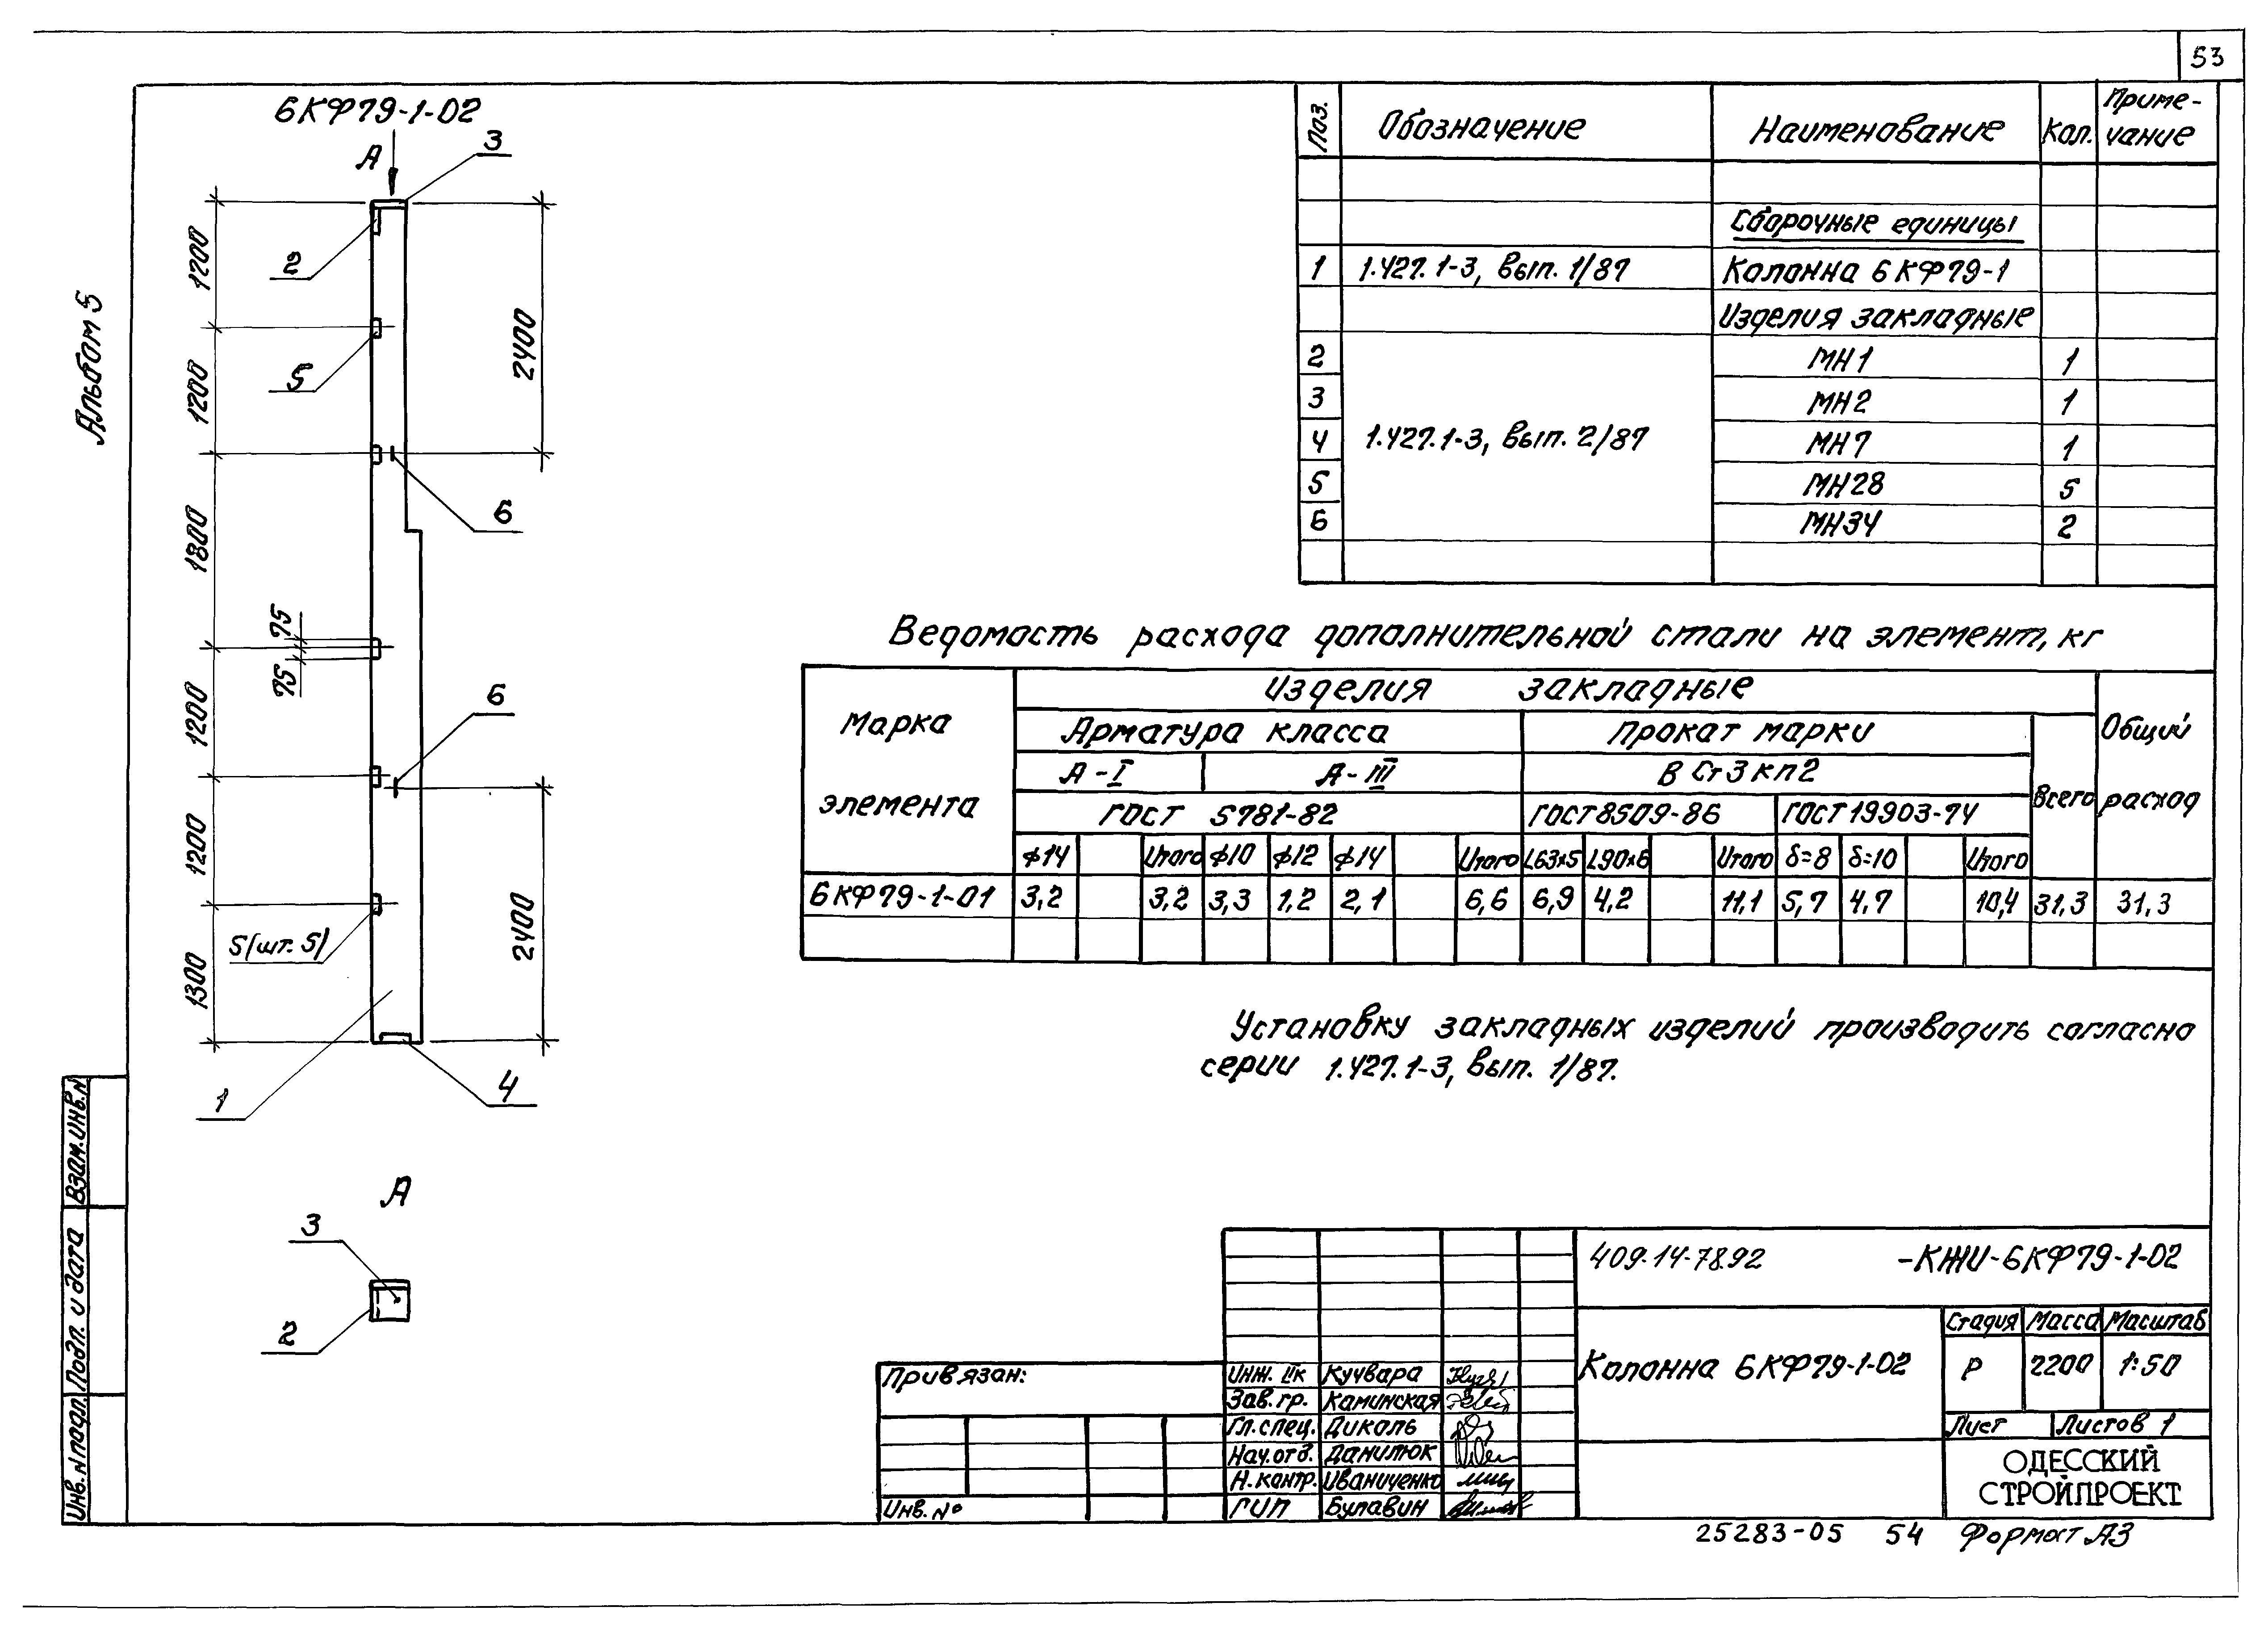 53
Альбом 5
6КФ79-1-02
А
3
2
5
6
6
5(шт. 5)
1
4
1200
1200
1800
75
75
1200
1200
1300
2400
2400
А
3
2
Поз. Обозначение Наименование Кол. Приме-
чание
Сборочные единицы
1 1.427.1-3, вып. 1/87 Колонна 6КФ79-1
Изделия закладные
2 МН1 1
3 МН2 1
4 1.427.1-3, вып. 2/87 МН7 1
5 МН28 5
6 МН34 2
Ведомость расхода дополнительной стали на элемент, кг
Марка
элемента
Изделия закладные
Арматура класса Прокат марки
А-I А-III ВСт3кп2
ГОСТ 5781-82 ГОСТ8509-86 ГОСТ19903-74
Всего
Общий
расход
ф14 Итого ф10 ф12 ф14 Итого L63х5 L90х6 Итого δ=8 δ=10 Итого
6КФ79-1-01 3,2 3,2 3,3 1,2 2,1 6,6 6,9 4,2 11,1 5,7 4,7 10,4 31,3 31,3
Установку закладных изделий производить согласно
серии 1.427.1-3, вып. 1/87.
Взам.инв.N
Подп. и дата
Инв.N подл.
Привязан:
Инв. №
Инж. IIк Кучвара
Зав.гр. Каминская
Гл.спец. Дикаль
Нач.отд. Данилюк
Н.контр. Иваниченко
ГИП Булавин
409-14-78.92 -КЖИ-6КФ79-1-02
Колонна 6КФ79-1-02
Стадия Масса Масштаб
Р 2200 1:50
Лист Листов 1
ОДЕССКИЙ
СТРОЙПРОЕКТ
25283-05 54 Формат А3